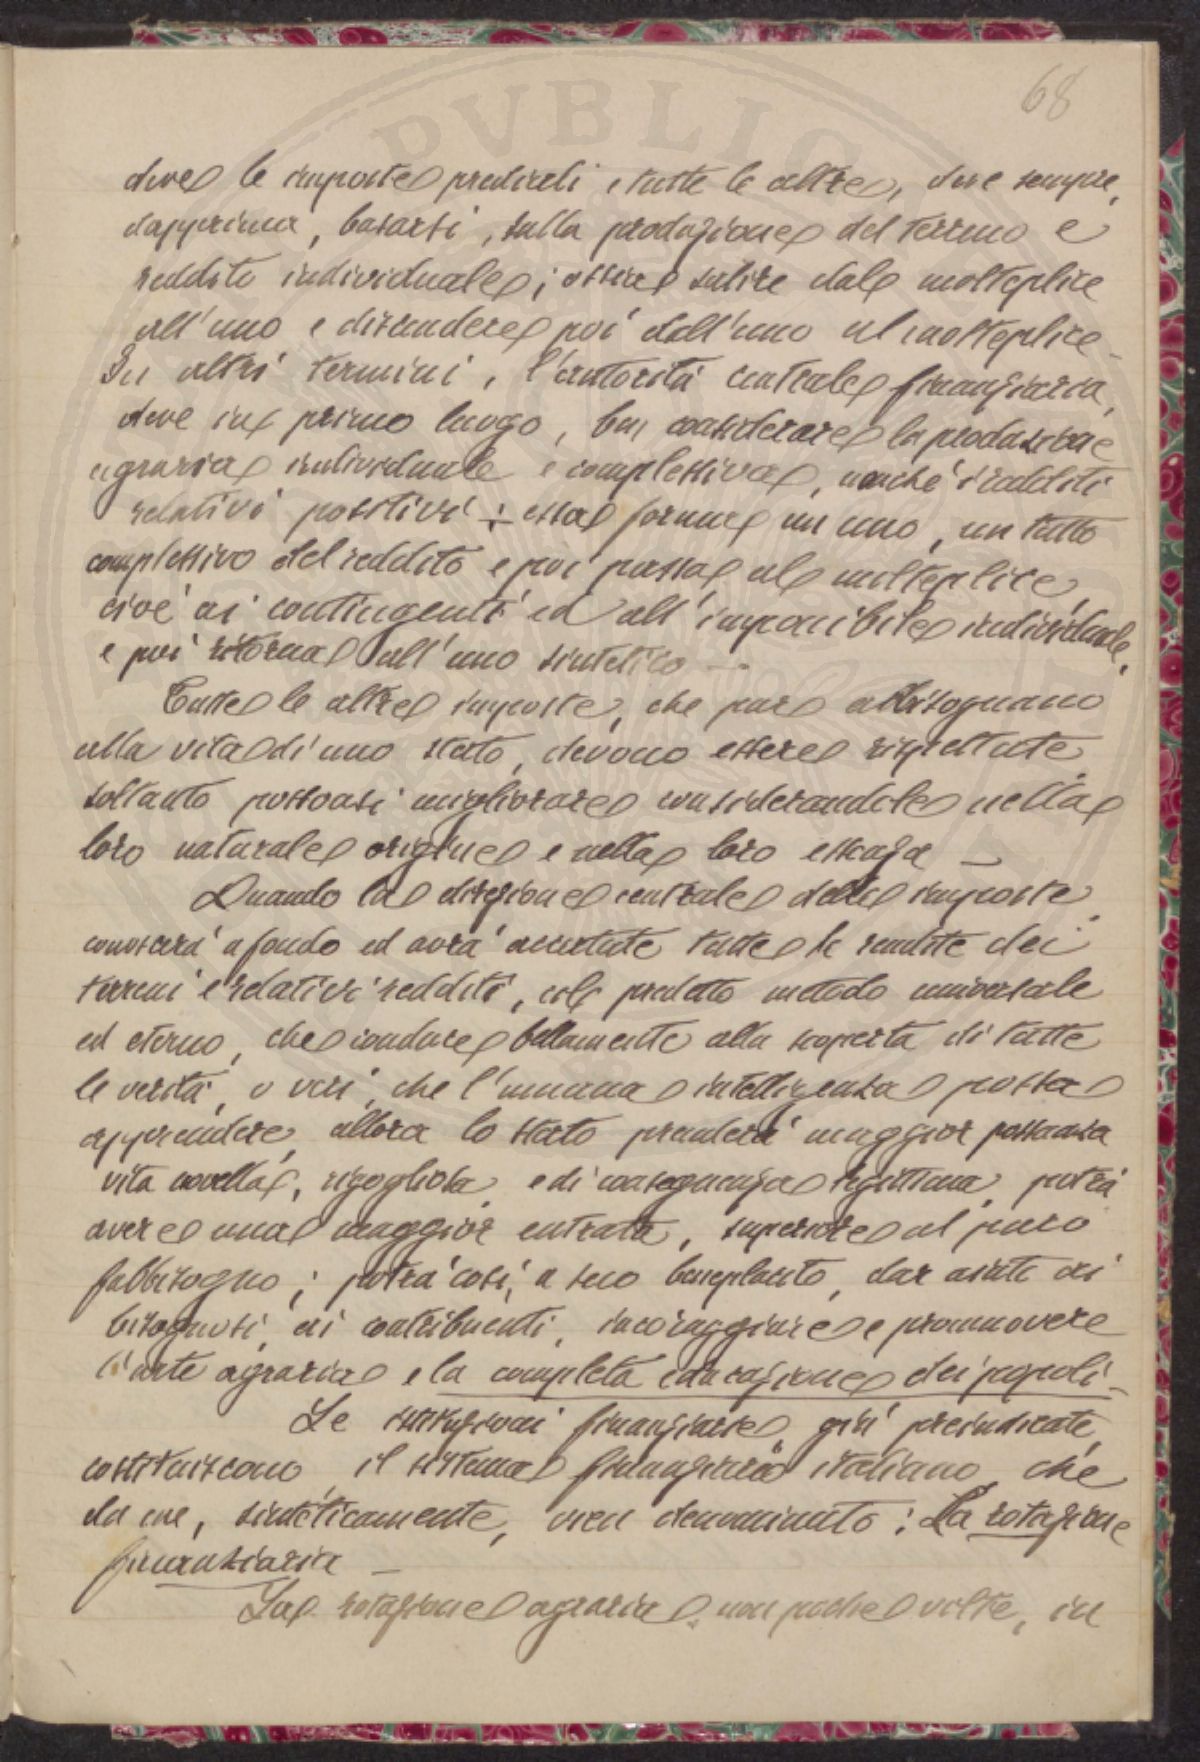 68
deve le imposte prediali e tutte le altre, deve sempre,
dapprima, basarsi, sulla produzione del terreno e
reddito individuale; ossia salire dal molteplice
all'uno e discendere poi dall'uno al molteplice -
In altri termini, l'autorità centrale finanziaria,
deve in primo luogo, ben considerare la produzione
agraria individuale e complessiva, nonché i redditi
relativi positivi : essa forma un uno, un tutto
complessivo del reddito e poi passa al molteplice,
cioè ai contingenti ed all'imponibile individuale,
e poi ritorna all'uno sintetico -
Tutte le altre imposte, che pure abbisognano
alla vita di uno stato, devono essere rispettate,
soltanto possonsi migliorare considerandole nella
loro naturale origine e nella loro essenza -
Quando la direzione centrale delle imposte
conoscerà a fondo ed avrà accertate tutte le rendite dei
terreni e relativi redditi, col predetto metodo universale
ed eterno, che conduce bellamente alla scoperta di tutte
le verità, o veri, che l'umana intelligenza possa
apprendere, allora lo stato prenderà maggior possanza
vita novella, rigogliosa, e di conseguenza legittima, potrà
avere una maggior entrata, superiore al puro
fabbisogno; potrà così, a suo beneplacito, dar aiuto ai
bisognosi, ai contribuenti, incoraggiare e promuovere
l'arte agraria e la completa educazione dei popoli -
Le istituzioni finanziarie, già preindicate,
costituiscono, il sistema finanziario italiano, che
da me, sinteticamente, vien denominato : La rotazione
finanziaria -
La rotazione agraria, non poche volte, in